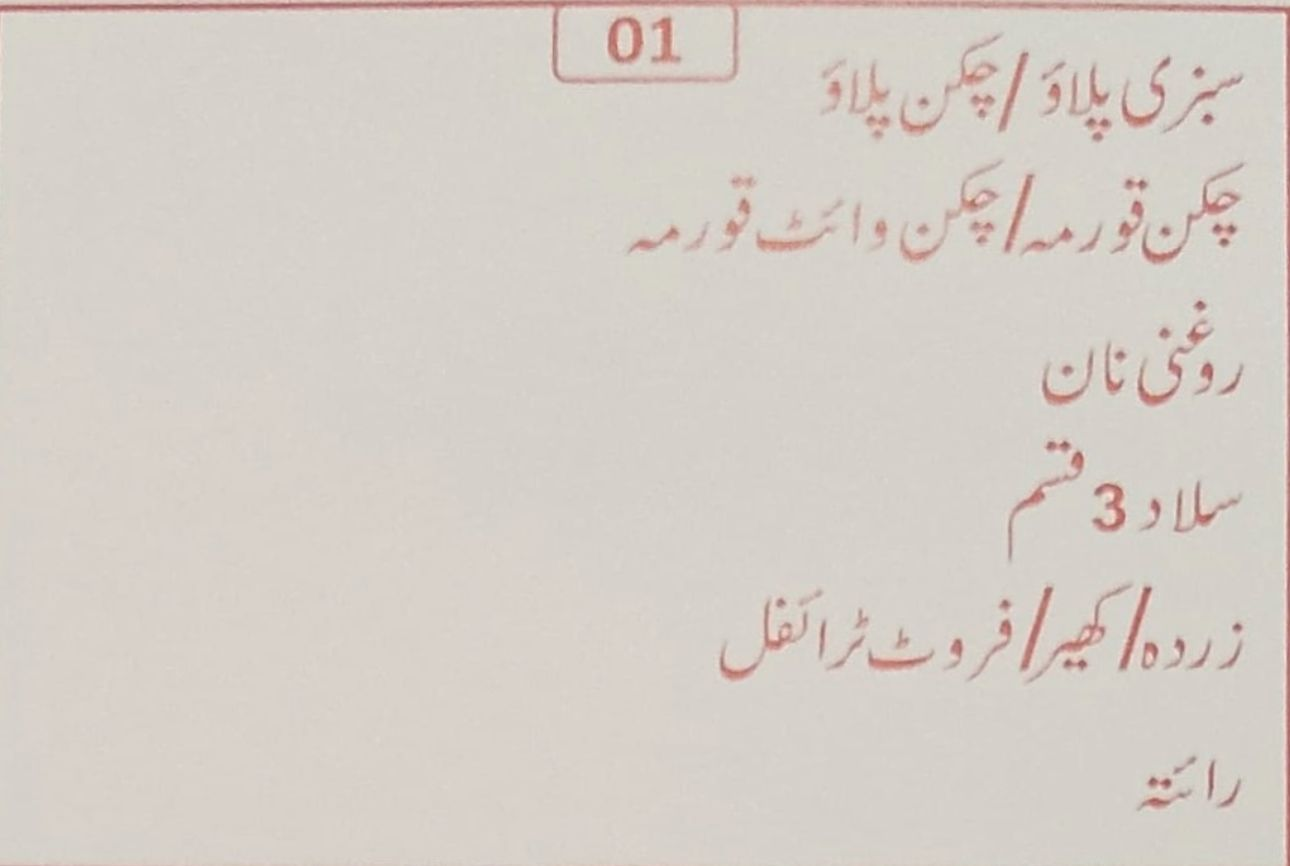 01
سبزی پلاؤ / چکن پلاؤ
چکن قورمہ / چکن وائٹ قورمہ
روغنی نان
سلاد 3 قسم
زردہ / کھیر / فروٹ ٹرائفل
رائتہ